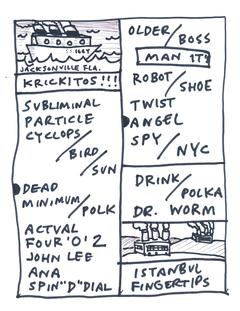 JACKSONVILLE FLA.
KRICKITOS!!!
SUBLIMINAL
PARTICLE
CYCLOPS/
BIRD/
SUN
DEAD
MINIMUM/
POLK
ACTUAL
FOUR 'O' 2
JOHN LEE
ANA
SPIN"D"DIAL
OLDER/
BOSS
MAN IT'S
ROBOT/
SHOE
TWIST
ANGEL
SPY/
NYC
DRINK/
POLKA
DR. WORM
ISTANBUL
FINGERTIPS